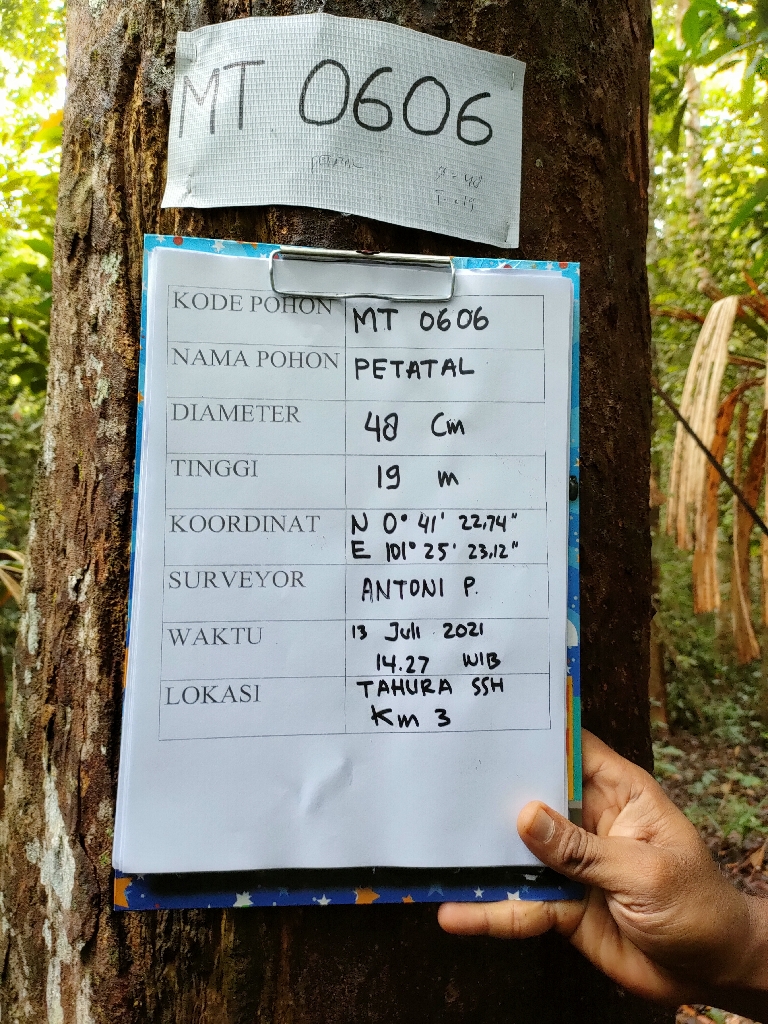 MT 0606
KODE POHON MT 0606
NAMA POHON PETATAL
DIAMETER 48 Cm
TINGGI 19 m
KOORDINAT N 0° 41' 22,74"
E 101° 25' 23,12"
SURVEYOR ANTONI P.
WAKTU 13 Juli 2021
14.27 WIB
LOKASI TAHURA SSH
Km 3